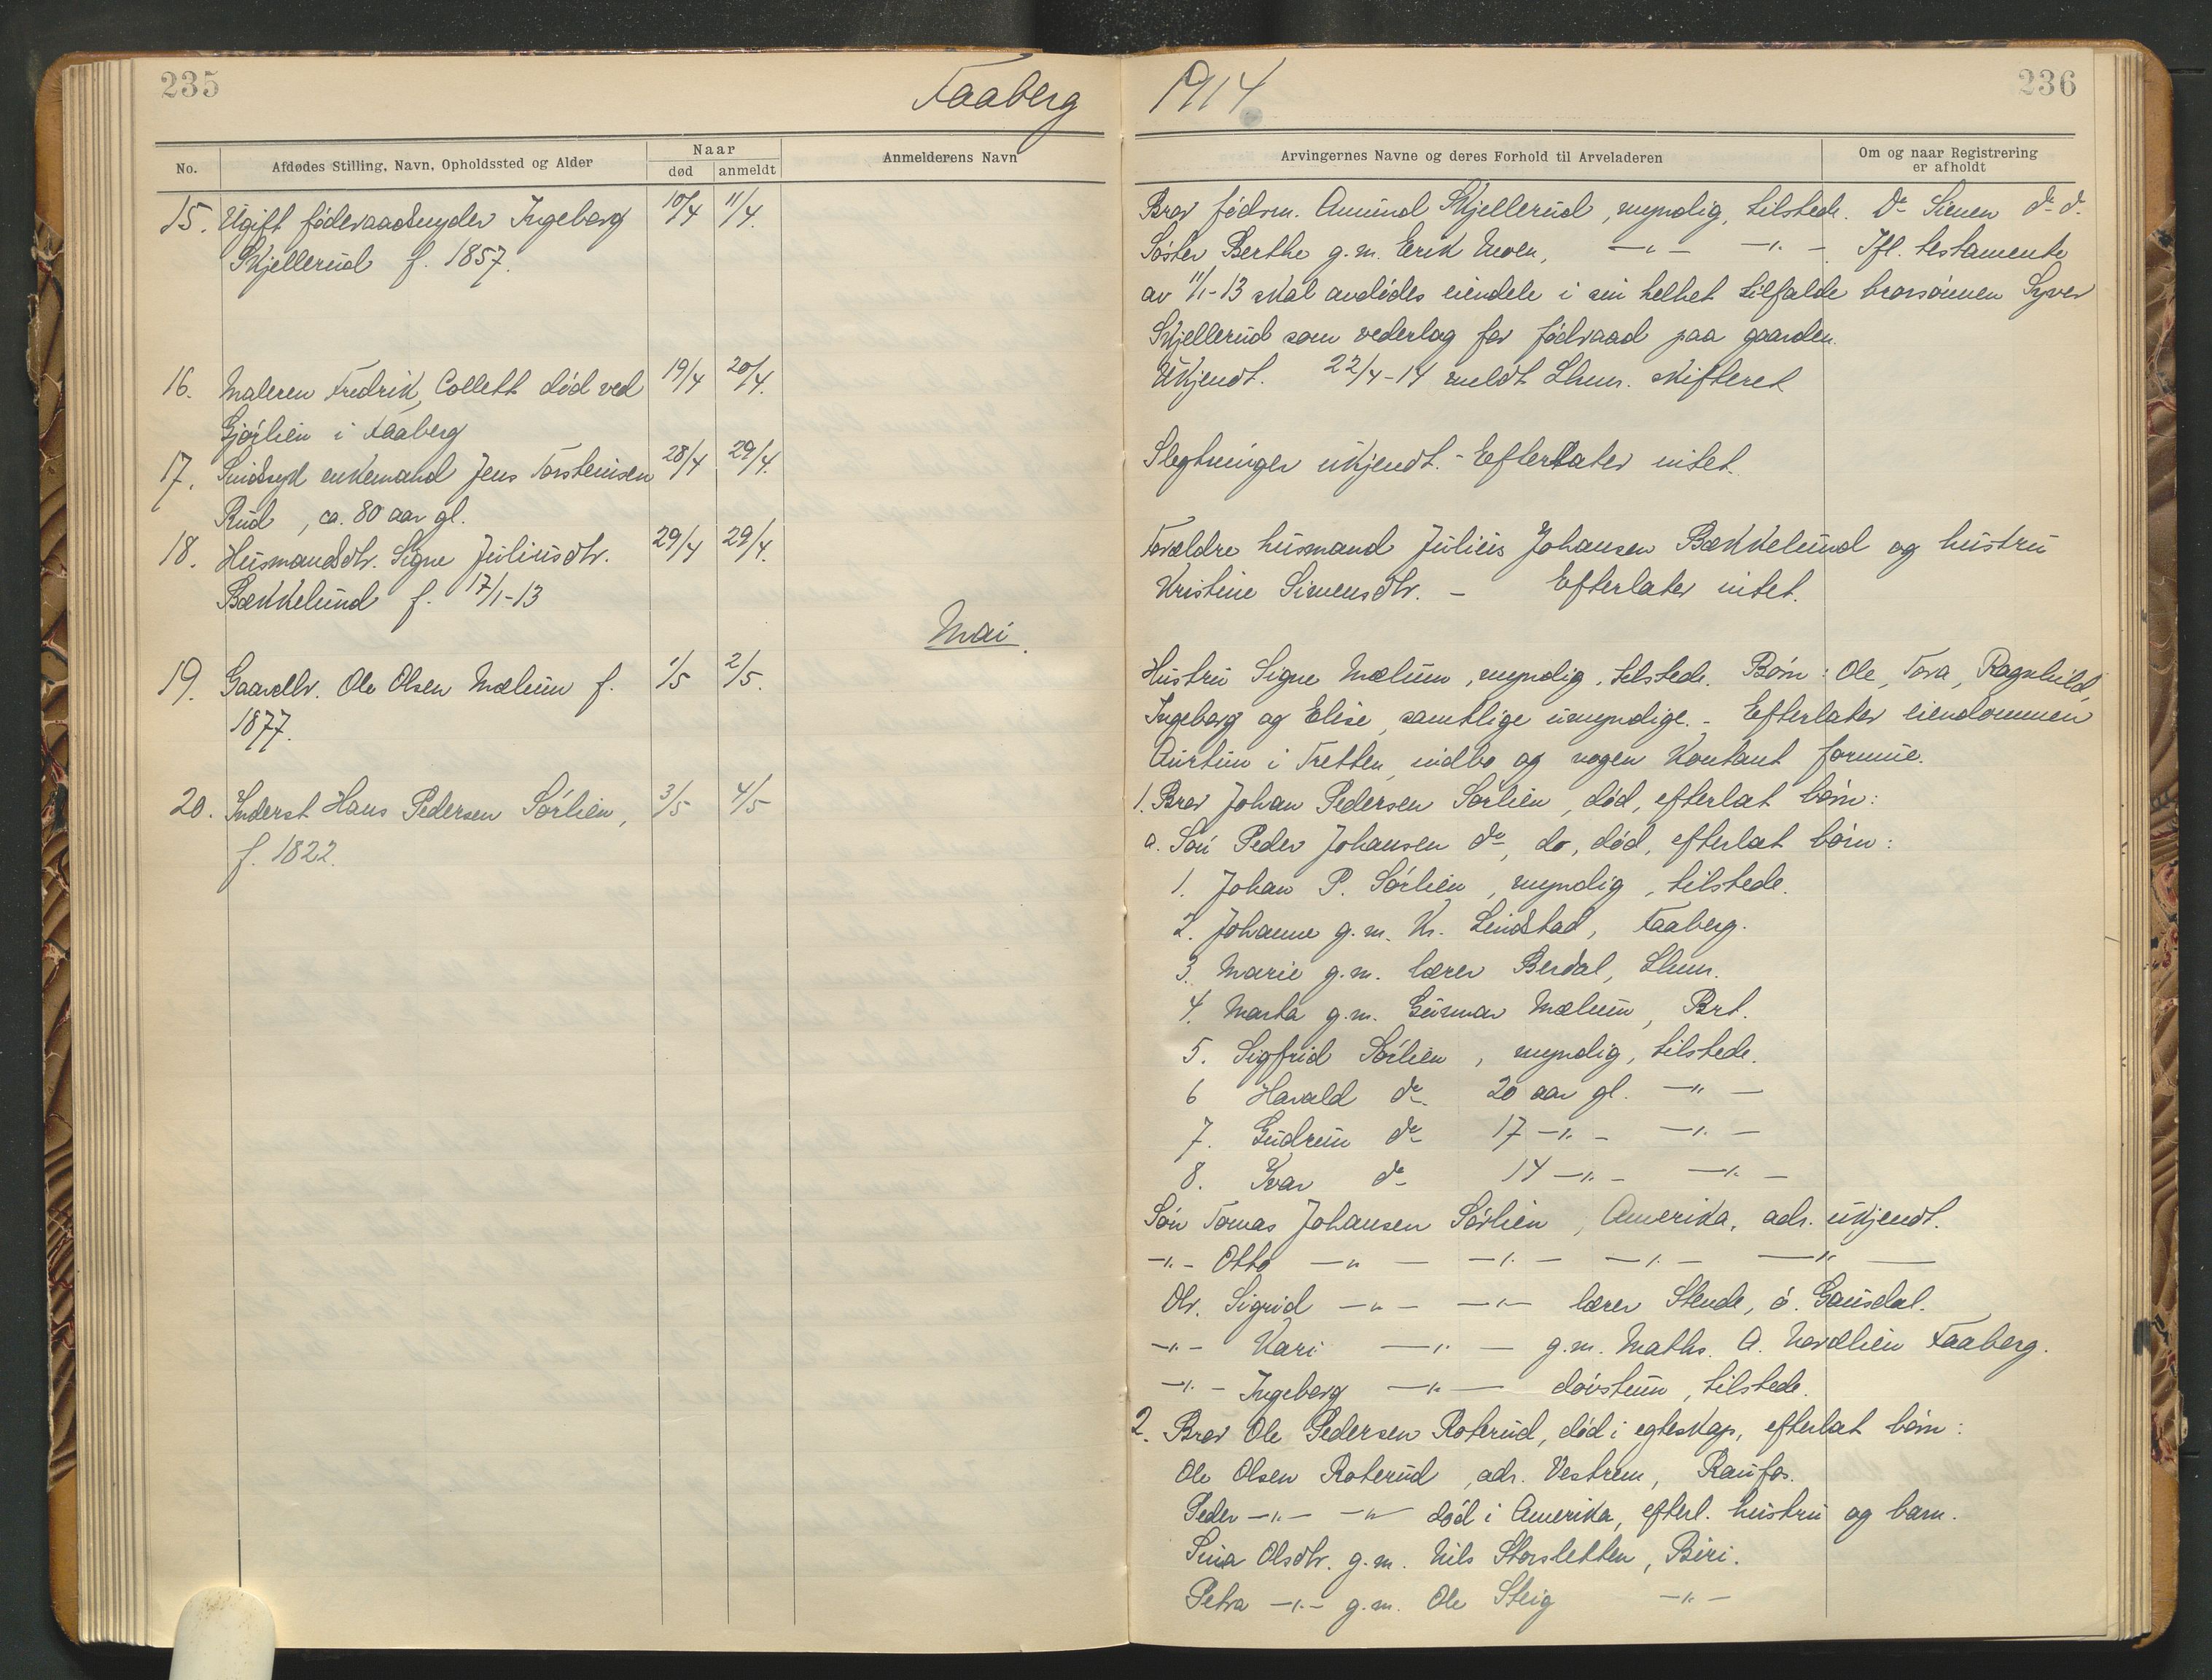 235
Faaberg
1914
236
No.
Afdødes Stilling, Navn, Opholdssted og Alder
Naar
død
anmeldt
Anmelderens Navn
Arvingernes Navne og deres Forhold til Arveladeren
Om og naar Registrering
er afholdt
15. Ugift föderaadsnyder Ingeborg 10/4 11/4.
Skjellerud f. 1857.
Bror födrm. Amund Skjellerud, myndig, tilstede. Do Simen do do.
Söster Berthe g.m. Erik Moen, —"— —"—. Ifl. testamente
av 11/1-13 skal avdödes eiendele i sin helhet tilfalde brorsönnen Syver
Skjellerud som vederlag for födraad paa gaarden.
16. Maleren Fredrik Collett död ved 19/4 20/4.
Gjörlien i Faaberg
Ukjendt. 22/4-14 meldt Lhmr. skifteret
17. Sindssyk enkemand Jens Torstensen 28/4 29/4.
Rud, ca. 80 aar gl.
Slegtninger ukjendt. - Efterlater intet.
18. Husmandsdtr. Signe Juliusdtr. 29/4 29/4.
Bækkelund f. 17/1-13
Forældre husmand Julius Johansen Bækkelund og hustru
Kristine Simensdtr. - Efterlater intet.
Mai.
19. Gaardbr. Ole Olsen Mælum f. 1/5 2/5.
1877.
Hustru Signe Mælum, myndig, tilstede. Börn: Ole, Tora, Ragnhild,
Ingeborg og Elise, samtlige umyndige. - Efterlater eiendommen
i Tretten, indbo og nogen kontant formue.
20. Inderst Hans Pedersen Sörlien, 3/5 4/5
f. 1822.
1. Bror Johan Pedersen Sörlien, död, efterlat börn:
a. Sön Peder Johansen do, do, död, efterlat börn:
1. Johan P. Sörlien, myndig, tilstede.
2. Johanne g.m. Kr. Lindstad, Faaberg.
3. Marie g.m. lærer Berdal, Lhmr.
4. Marta g.m. Gunnar Mælum, Brt.
5. Sigfrid Sörlien, myndig, tilstede.
6 Harald do. 20 aar gl. —"—
7. Gudrun do 17 —"— —"—
8. Ivar do 14 —"— —"—
Sön Tomas Johansen Sörlien, Amerika, adr. ukjendt.
—"— Otto —"— —"— —"— —"—
Dtr. Sigrid —"— —"— lærer Stende, ö. Gausdal.
—"— Kari —"— g.m. Maths. A. Nordlien Faaberg.
—"— Ingeborg —"— dövstum, tilstede.
2. Bror Ole Pedersen Roterud, död i egteskap, efterlat börn:
Ole Olsen Roterud, adr. Vestrem, Raufos.
Peder —"— —"— död i Amerika, efterl. hustru og barn.
Sina Olsdtr. g.m. Nils Storsletten, Biri.
Petra —"— g.m. Ole Steig —"—